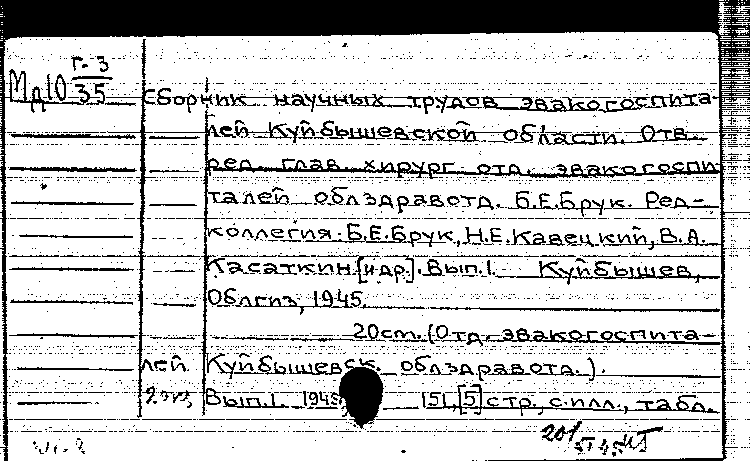 Г-3
Мд10 35
Сборник научных трудов эвакогоспита-
лей Куйбышевской области. Отв.
ред. глав. хирург. отд. эвакогоспи
талей облздравотд. Б.Е.Брук. Ред-
коллегия: Б.Е.Брук, Н.Е.Кавецкий, В.А.
Касаткин [и др]. Вып.1. Куйбышев,
Облгиз, 1945.
20см. (Отд. эвакогоспита-
лей Куйбышевск. облздравотд.).
2экз, Вып.1. 1945, 151, [5] стр., с илл., табл.